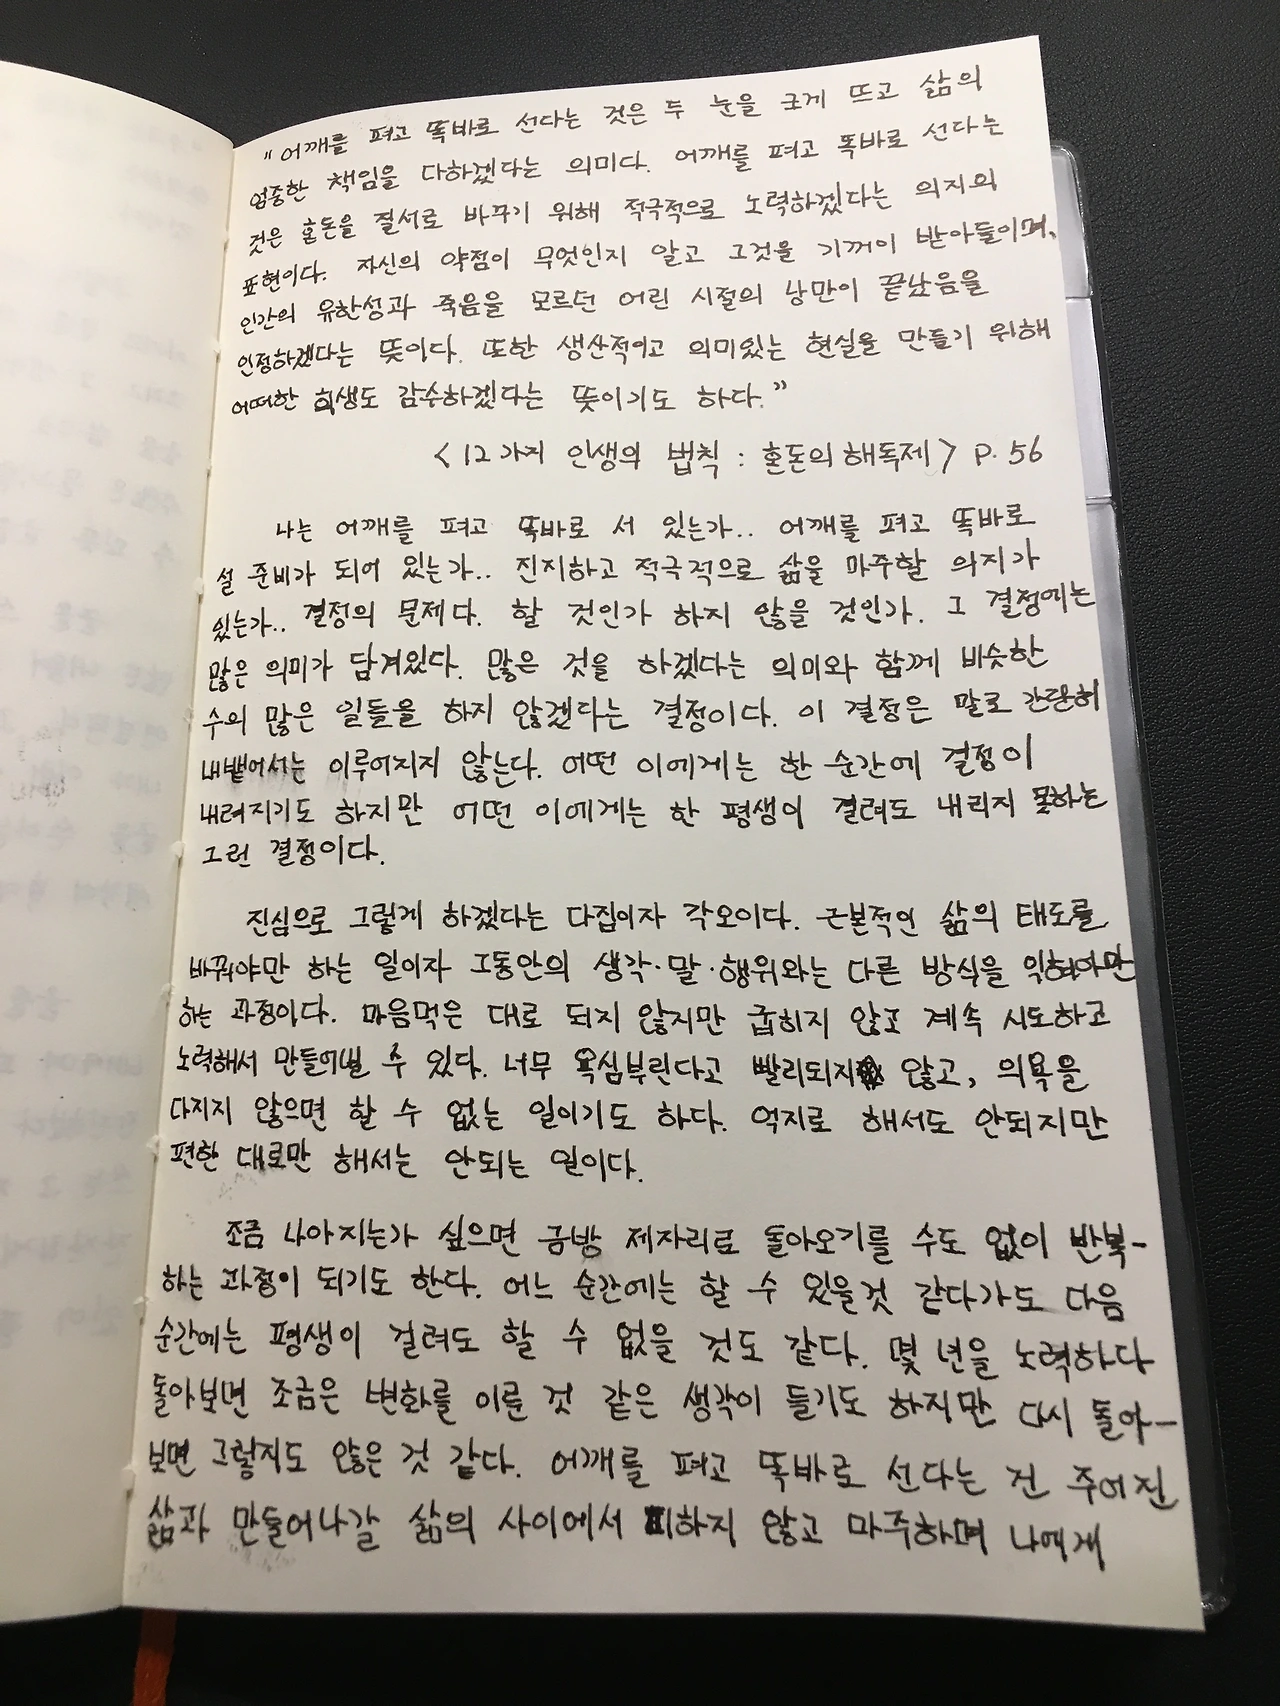 "어깨를 펴고 똑바로 선다는 것은 두 눈을 크게 뜨고 삶의
엄중한 책임을 다하겠다는 의미다. 어깨를 펴고 똑바로 선다는
것은 혼돈을 질서로 바꾸기 위해 적극적으로 노력하겠다는 의지의
표현이다. 자신의 약점이 무엇인지 알고 그것을 기꺼이 받아들이며,
인간의 유한성과 죽음을 모르던 어린 시절의 낭만이 끝났음을
인정하겠다는 뜻이다. 또한 생산적이고 의미있는 현실을 만들기 위해
어떠한 희생도 감수하겠다는 뜻이기도 하다."
<12가지 인생의 법칙 : 혼돈의 해독제> P. 56
나는 어깨를 펴고 똑바로 서 있는가.. 어깨를 펴고 똑바로
설 준비가 되어 있는가.. 진지하고 적극적으로 삶을 마주할 의지가
있는가.. 결정의 문제다. 할 것인가 하지 않을 것인가. 그 결정에는
많은 의미가 담겨있다. 많은 것을 하겠다는 의미와 함께 비슷한
수의 많은 일들을 하지 않겠다는 결정이다. 이 결정은 말로 간단히
내뱉어서는 이루어지지 않는다. 어떤 이에게는 한 순간에 결정이
내려지기도 하지만 어떤 이에게는 한 평생이 걸려도 내리지 못하는
그런 결정이다.
진심으로 그렇게 하겠다는 다짐이자 각오이다. 근본적인 삶의 태도를
바꿔야만 하는 일이자 그동안의 생각·말·행위와는 다른 방식을 익혀야만
하는 과정이다. 마음먹은 대로 되지 않지만 굽히지 않고 계속 시도하고
노력해서 만들어낼 수 있다. 너무 욕심부린다고 빨리되지 않고, 의욕을
다지지 않으면 할 수 없는 일이기도 하다. 억지로 해서도 안되지만
편한 대로만 해서는 안되는 일이다.
조금 나아지는가 싶으면 금방 제자리로 돌아오기를 수도 없이 반복-
하는 과정이 되기도 한다. 어느 순간에는 할 수 있을것 같다가도 다음
순간에는 평생이 걸려도 할 수 없을 것도 같다. 몇 년을 노력하다
돌아보면 조금은 변화를 이룬 것 같은 생각이 들기도 하지만 다시 돌아-
보면 그렇지도 않은 것 같다. 어깨를 펴고 똑바로 선다는 건 주어진
삶과 만들어나갈 삶의 사이에서 피하지 않고 마주하며 나에게